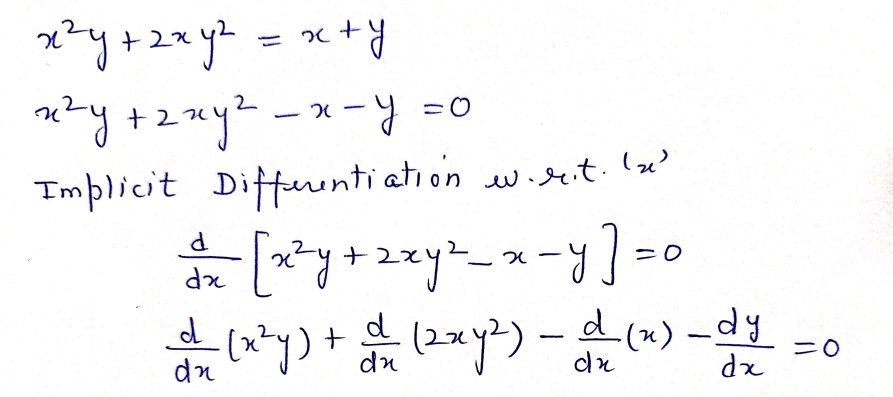 x²y + 2xy² = x + y
x²y + 2xy² - x - y = 0
Implicit Differentiation w.r.t. 'x'
d/dx [x²y + 2xy² - x - y] = 0
d/dx (x²y) + d/dx (2xy²) - d/dx (x) - dy/dx = 0